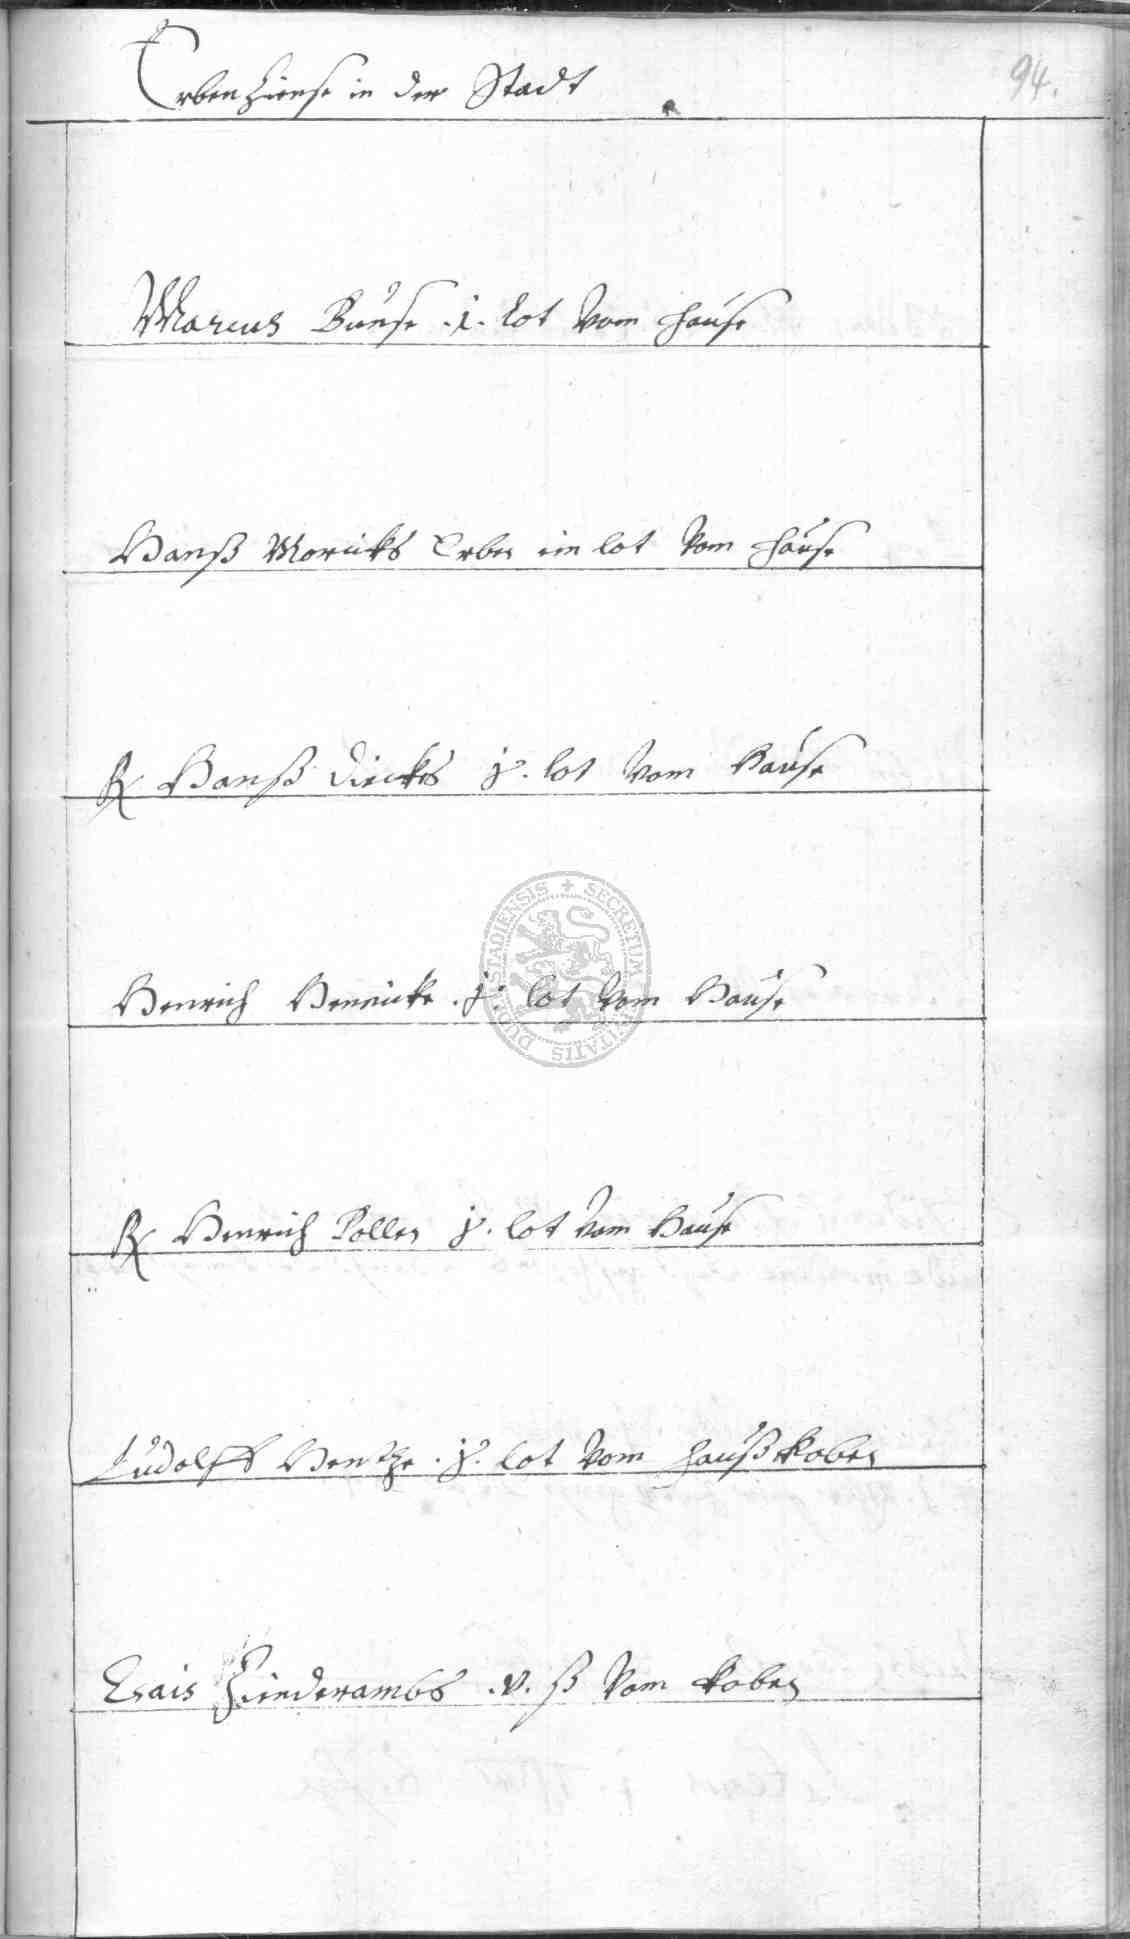 Erbenzinse in der Stadt
94.
Marcus Buese .1. lot vom hause
Hanß Moricks Erben ein lot vom hause
Hanß Dierkes j. lot vom Hause
Henrich Henricke .j. lot vom Hause
Henrich Pollen j. lot vom Hause
Ludolff Hentze .j. lot vom haußkoben
Esais .v. ß vom koben
DUDERSTADIENSIS + SECRETUM CIVITATIS